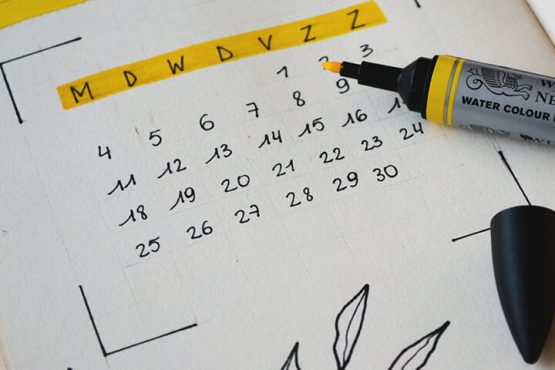 M D W D V Z Z
1 2 3
4 5 6 7 8 9
11 12 13 14 15 16
18 19 20 21 22 23 24
25 26 27 28 29 30
WATER COLOUR